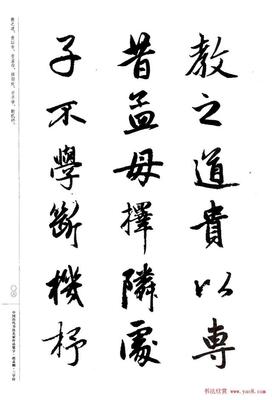 教之道貴以專
昔孟母擇隣處
子不學斷機杼
教之道，貴以專。昔孟母，擇隣處。子不學，斷機杼。
书法欣赏
www.yac8.com